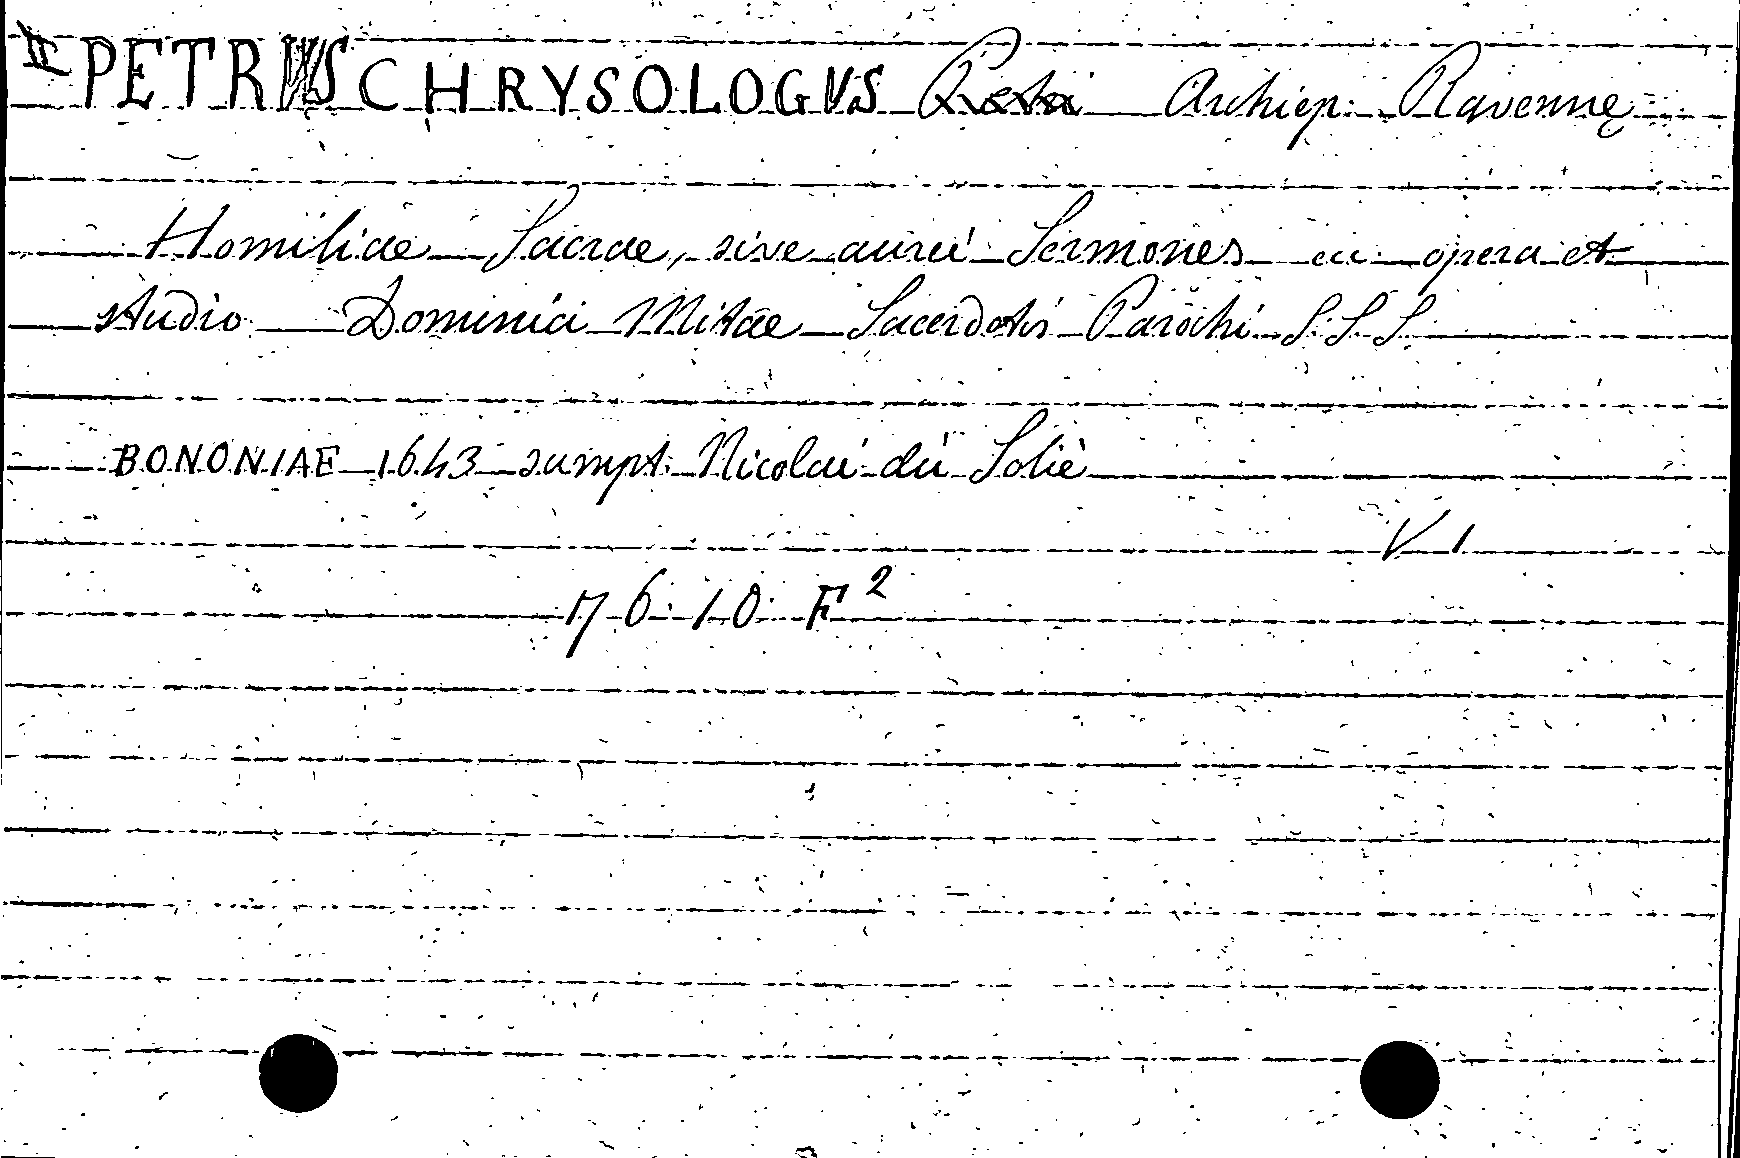 PETRVS CHRYSOLOGVS Petri Archiep. Ravennę
Homiliae Sacrae, sive aurei Sermones ex opera et
studio Dominici Mitae Sacerdotis Parochi S. S. S.
BONONIAE 1643 sumpt. Nicolai du Soliè
V 1
76 10 F 2